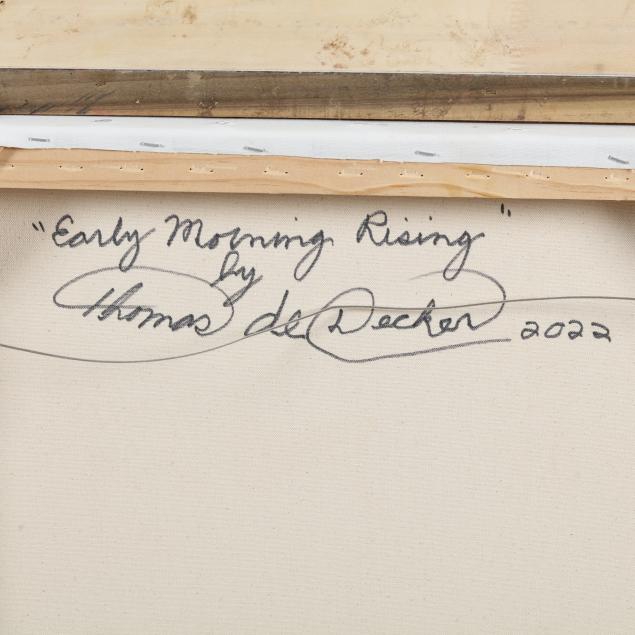 "Early Morning Rising"
by
Thomas de Decker 2022